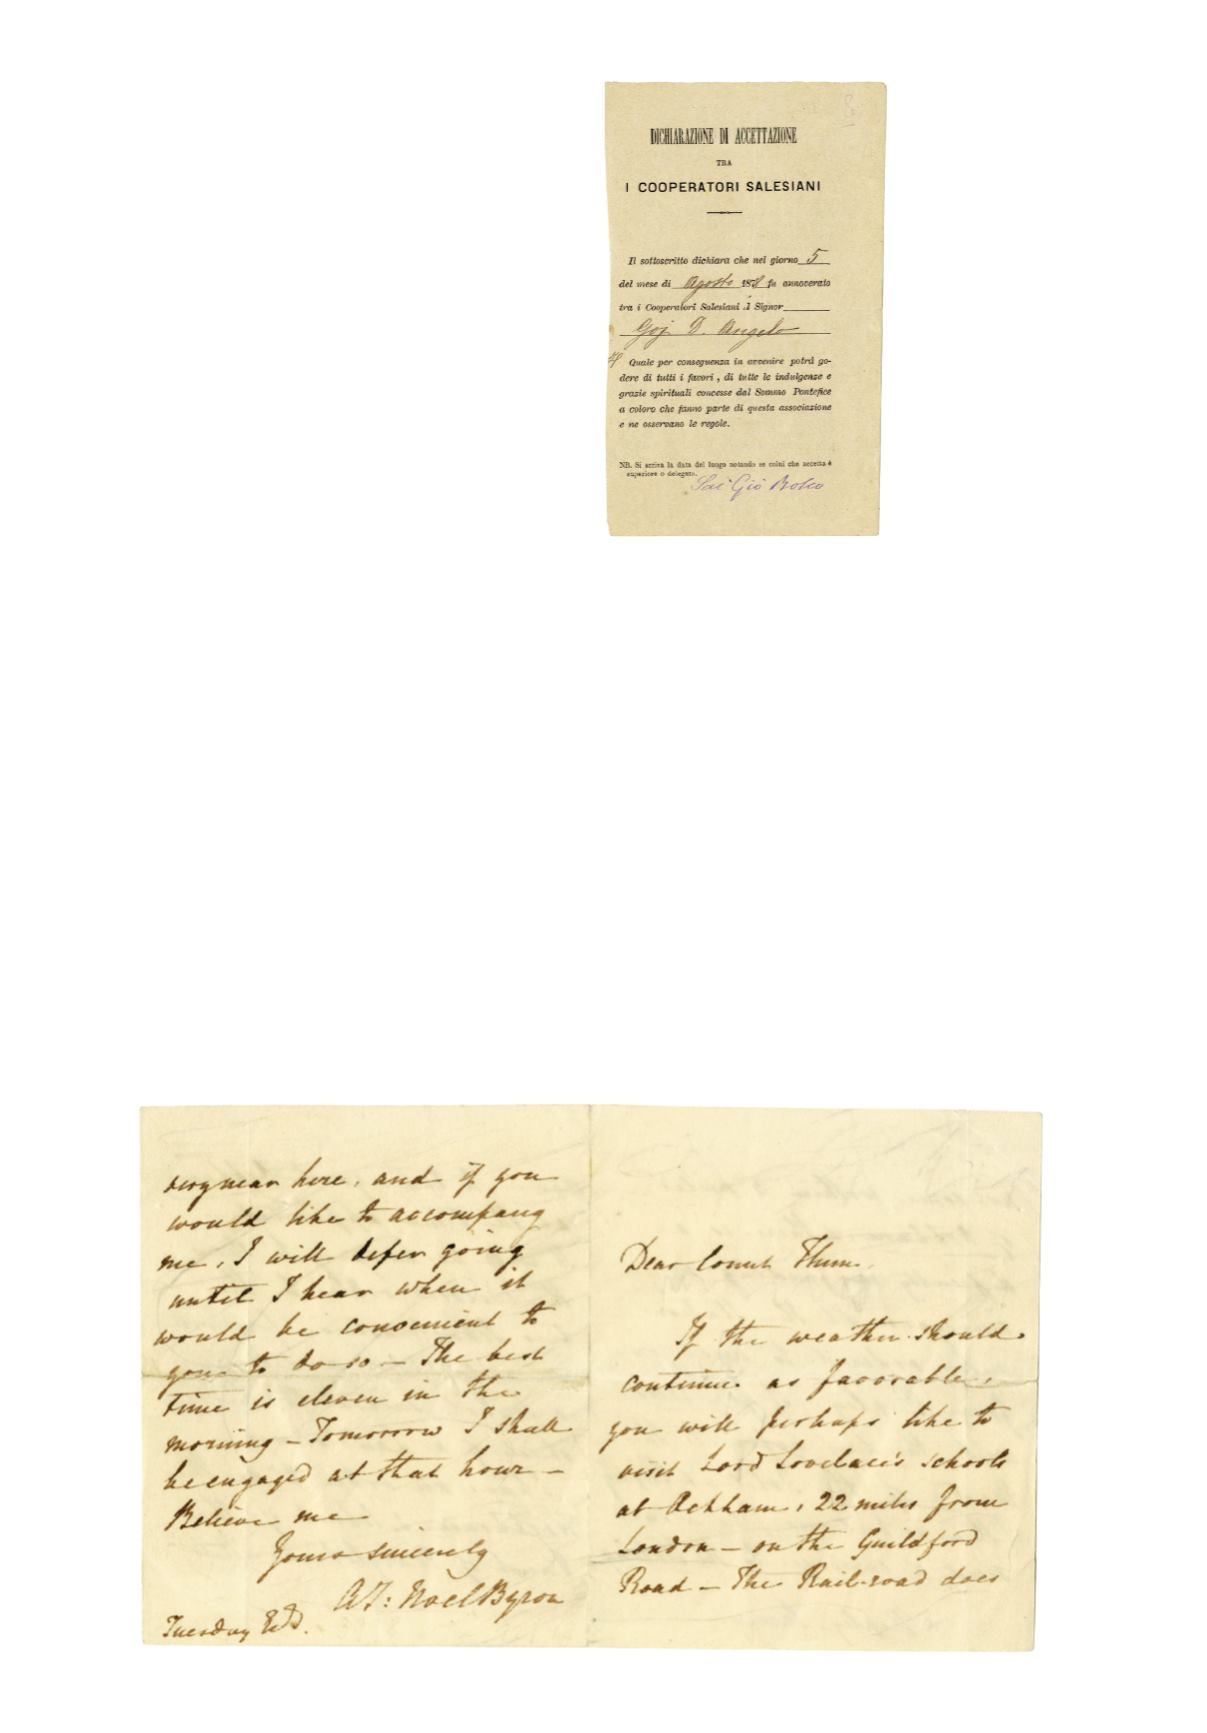 DICHIARAZIONE DI ACCETTAZIONE
TRA
I COOPERATORI SALESIANI
Il sottoscritto dichiara che nel giorno 5
del mese di Agosto 1878 fu annoverato
tra i Cooperatori Salesiani il Signor
Goj D. Angelo
Quale per conseguenza in avvenire potrà go-
dere di tutti i favori, di tutte le indulgenze e
grazie spirituali concesse dal Sommo Pontefice
a coloro che fanno parte di questa associazione
e ne osservano le regole.
NB. Si scriva la data del luogo notando se colui che accetta è
superiore o delegato.
Sac Gio Bosco
very near here, and if you
would like to accompany
me, I will defer going
until I hear when it
would be convenient to
you to do so – The best
time is eleven in the
morning – Tomorrow I shall
be engaged at that hour –
Believe me
Yours sincerely
A I: Noel Byron
Tuesday
Dear Count Thun,
If the weather should
continue as favorable,
you will perhaps like to
visit Lord Lovelace's schools
at Ockham, 22 miles from
London – on the Guildford
Road – The Rail-road does